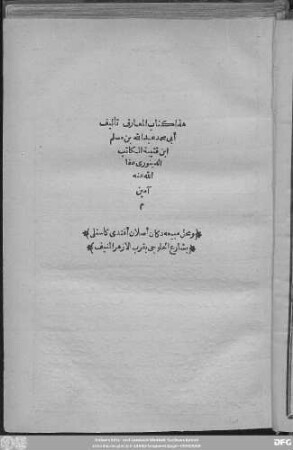 هذا كتاب المعارف تأليف
أبي محمد عبدالله بن مسلم
ابن قتيبة الكاتب
الدينوري عفا
الله عنه
آمين
م
﴿ومحل مبيعه دكان أصلان أفندي كاستلي﴾
﴿بشارع الحلوجي بقرب الازهر المنيف﴾
DFG